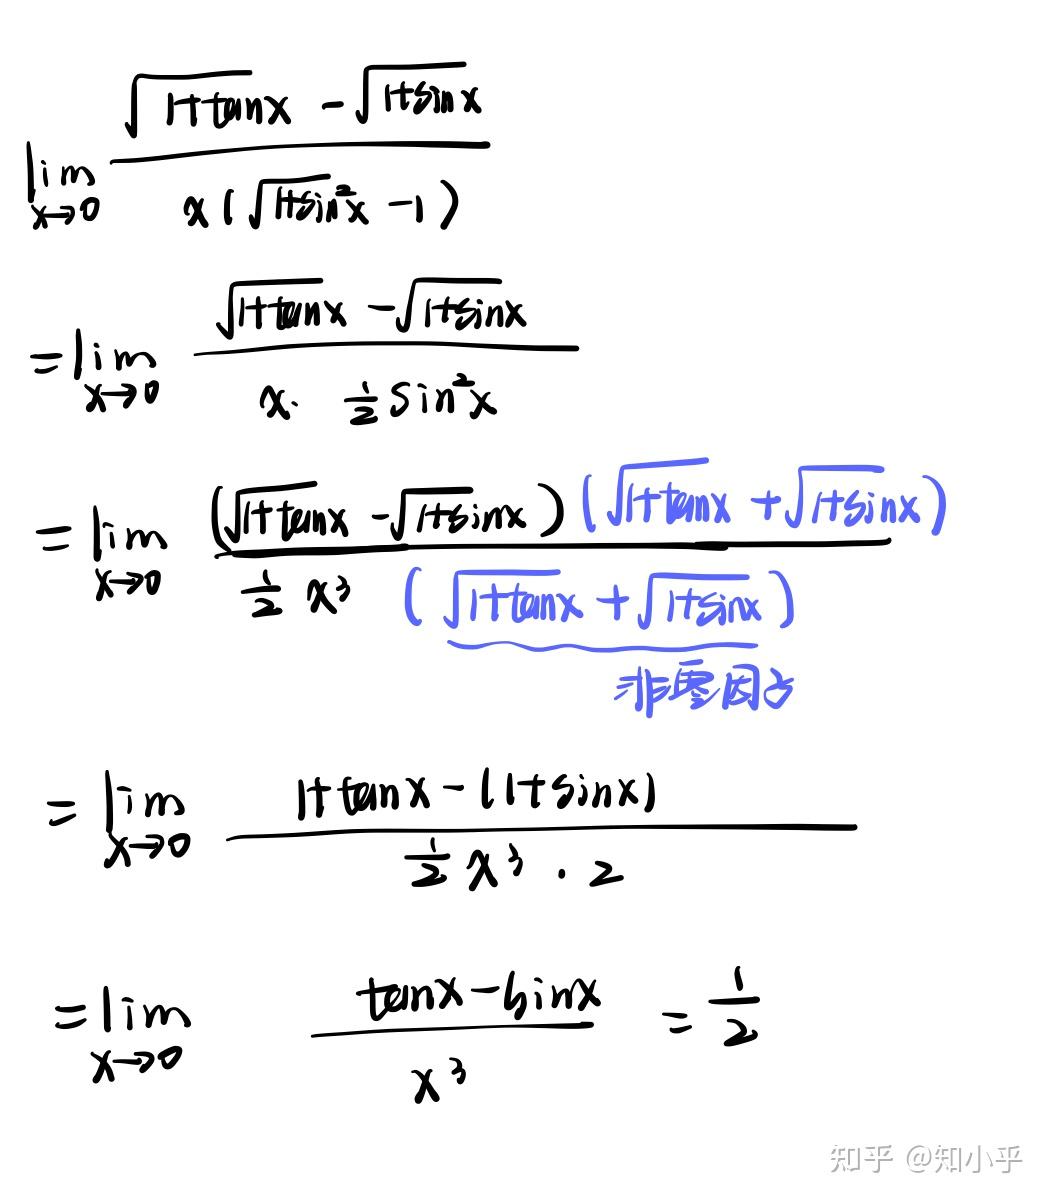 lim x→0 (√(1+tanx) - √(1+sinx)) / (x(√(1+sin²x) - 1))
= lim x→0 (√(1+tanx) - √(1+sinx)) / (x · ½ sin²x)
= lim x→0 (√(1+tanx) - √(1+sinx)) (√(1+tanx) + √(1+sinx)) / (½ x³ (√(1+tanx) + √(1+sinx)))
非零因子
= lim x→0 (1+tanx - (1+sinx)) / (½ x³ · 2)
= lim x→0 (tanx - sinx) / x³ = ½
知乎 @知小乎